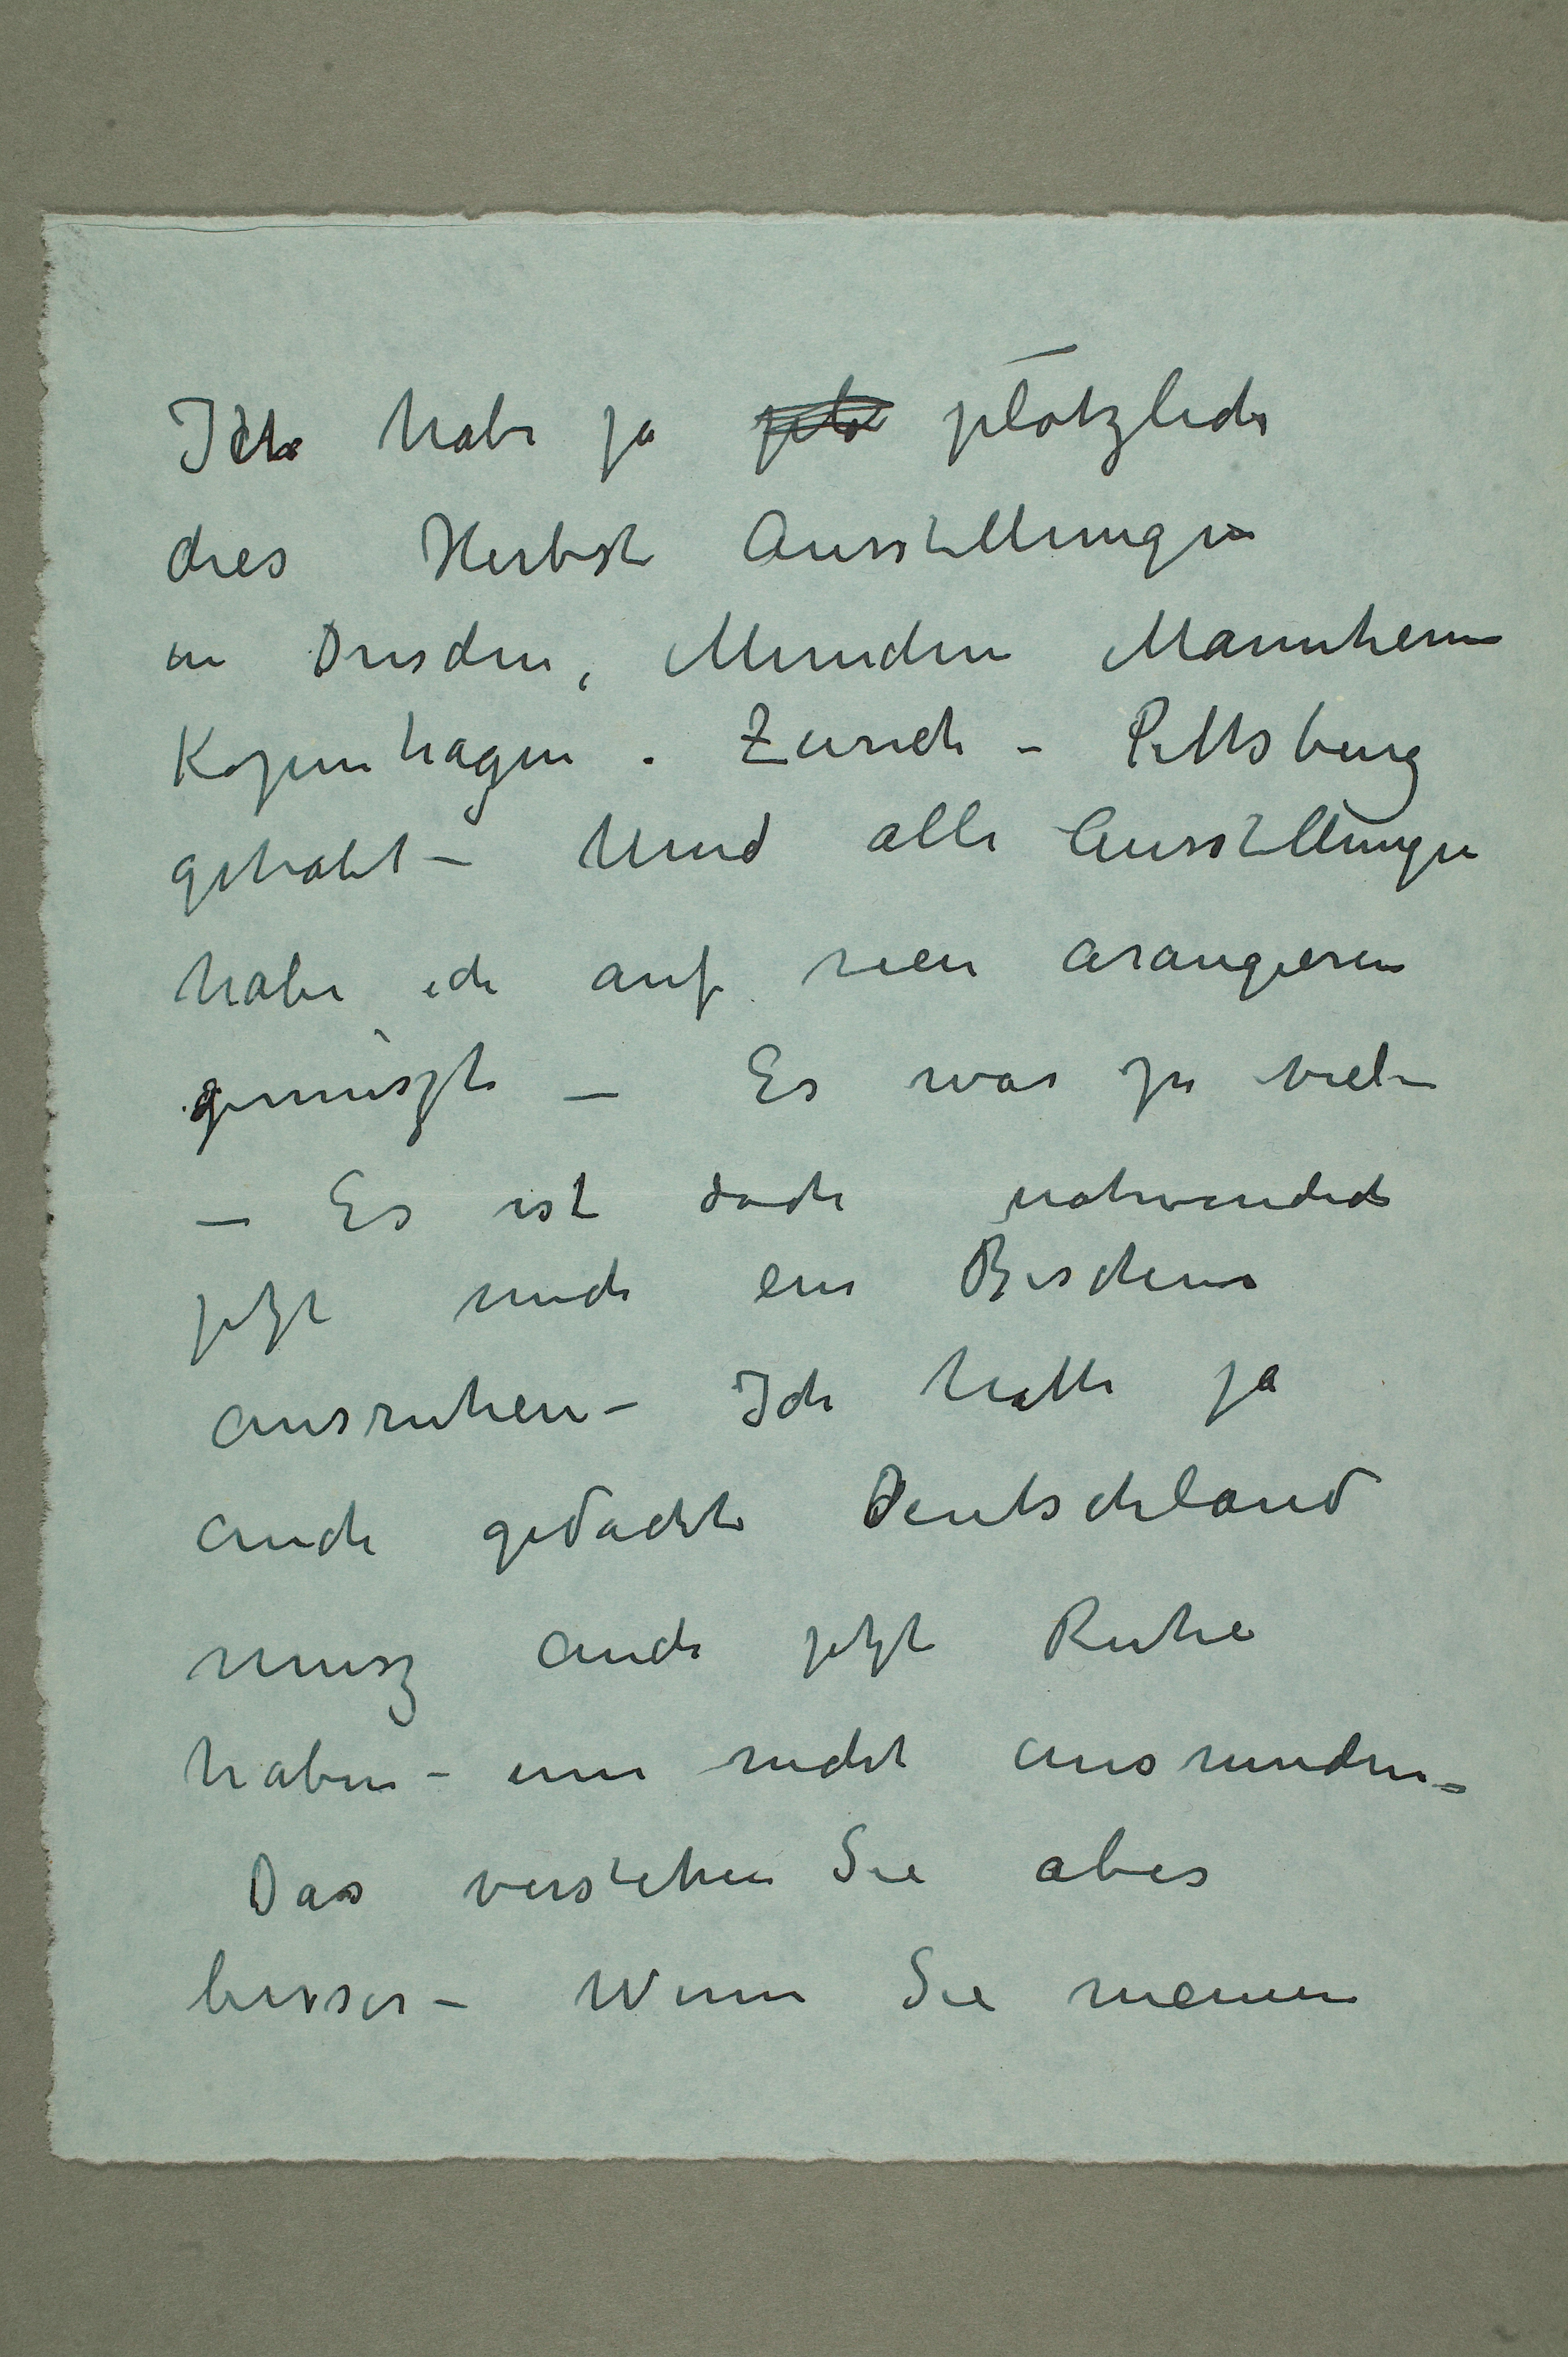 Ich habe ja plö plötzlich
dies Herbst Ausstellungen
in Dresden, Münichen Mannheim
Kopenhagen. Zürich – Pittsburg
gehabt – Und alle Ausstellungen
habe ich auf neu arangieren
gemüszt – Es war zu viel –
– Es ist doch notwendich
jetzt mich ein Bischen
ausruhen – Ich hatte ja
auch gedacht Deutschland
musz auch jetzt Ruhe
haben – um nicht
Das verstehen Sie aber
besser – Wenn Sie meinen